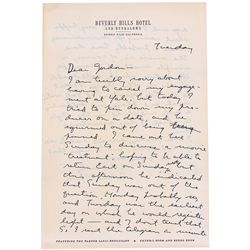 BEVERLY HILLS HOTEL
AND BUNGALOWS
BEVERLY HILLS CALIFORNIA
Tuesday
Dear Gordon—
I am terribly sorry about
having to cancel my engage-
ment at Yale, but today I
tried to pin down my pro-
ducer on a date, and he
squirmed out of being
pinned. I came out here
Sunday to discuss a movie
treatment, hoping to be able to
return East on Sunday, but
this afternoon he indicated
that Sunday was out of the
question, Monday probably so,
and Tuesday was the earliest
day on which he would negotiate
So, I sent the telegram a minute